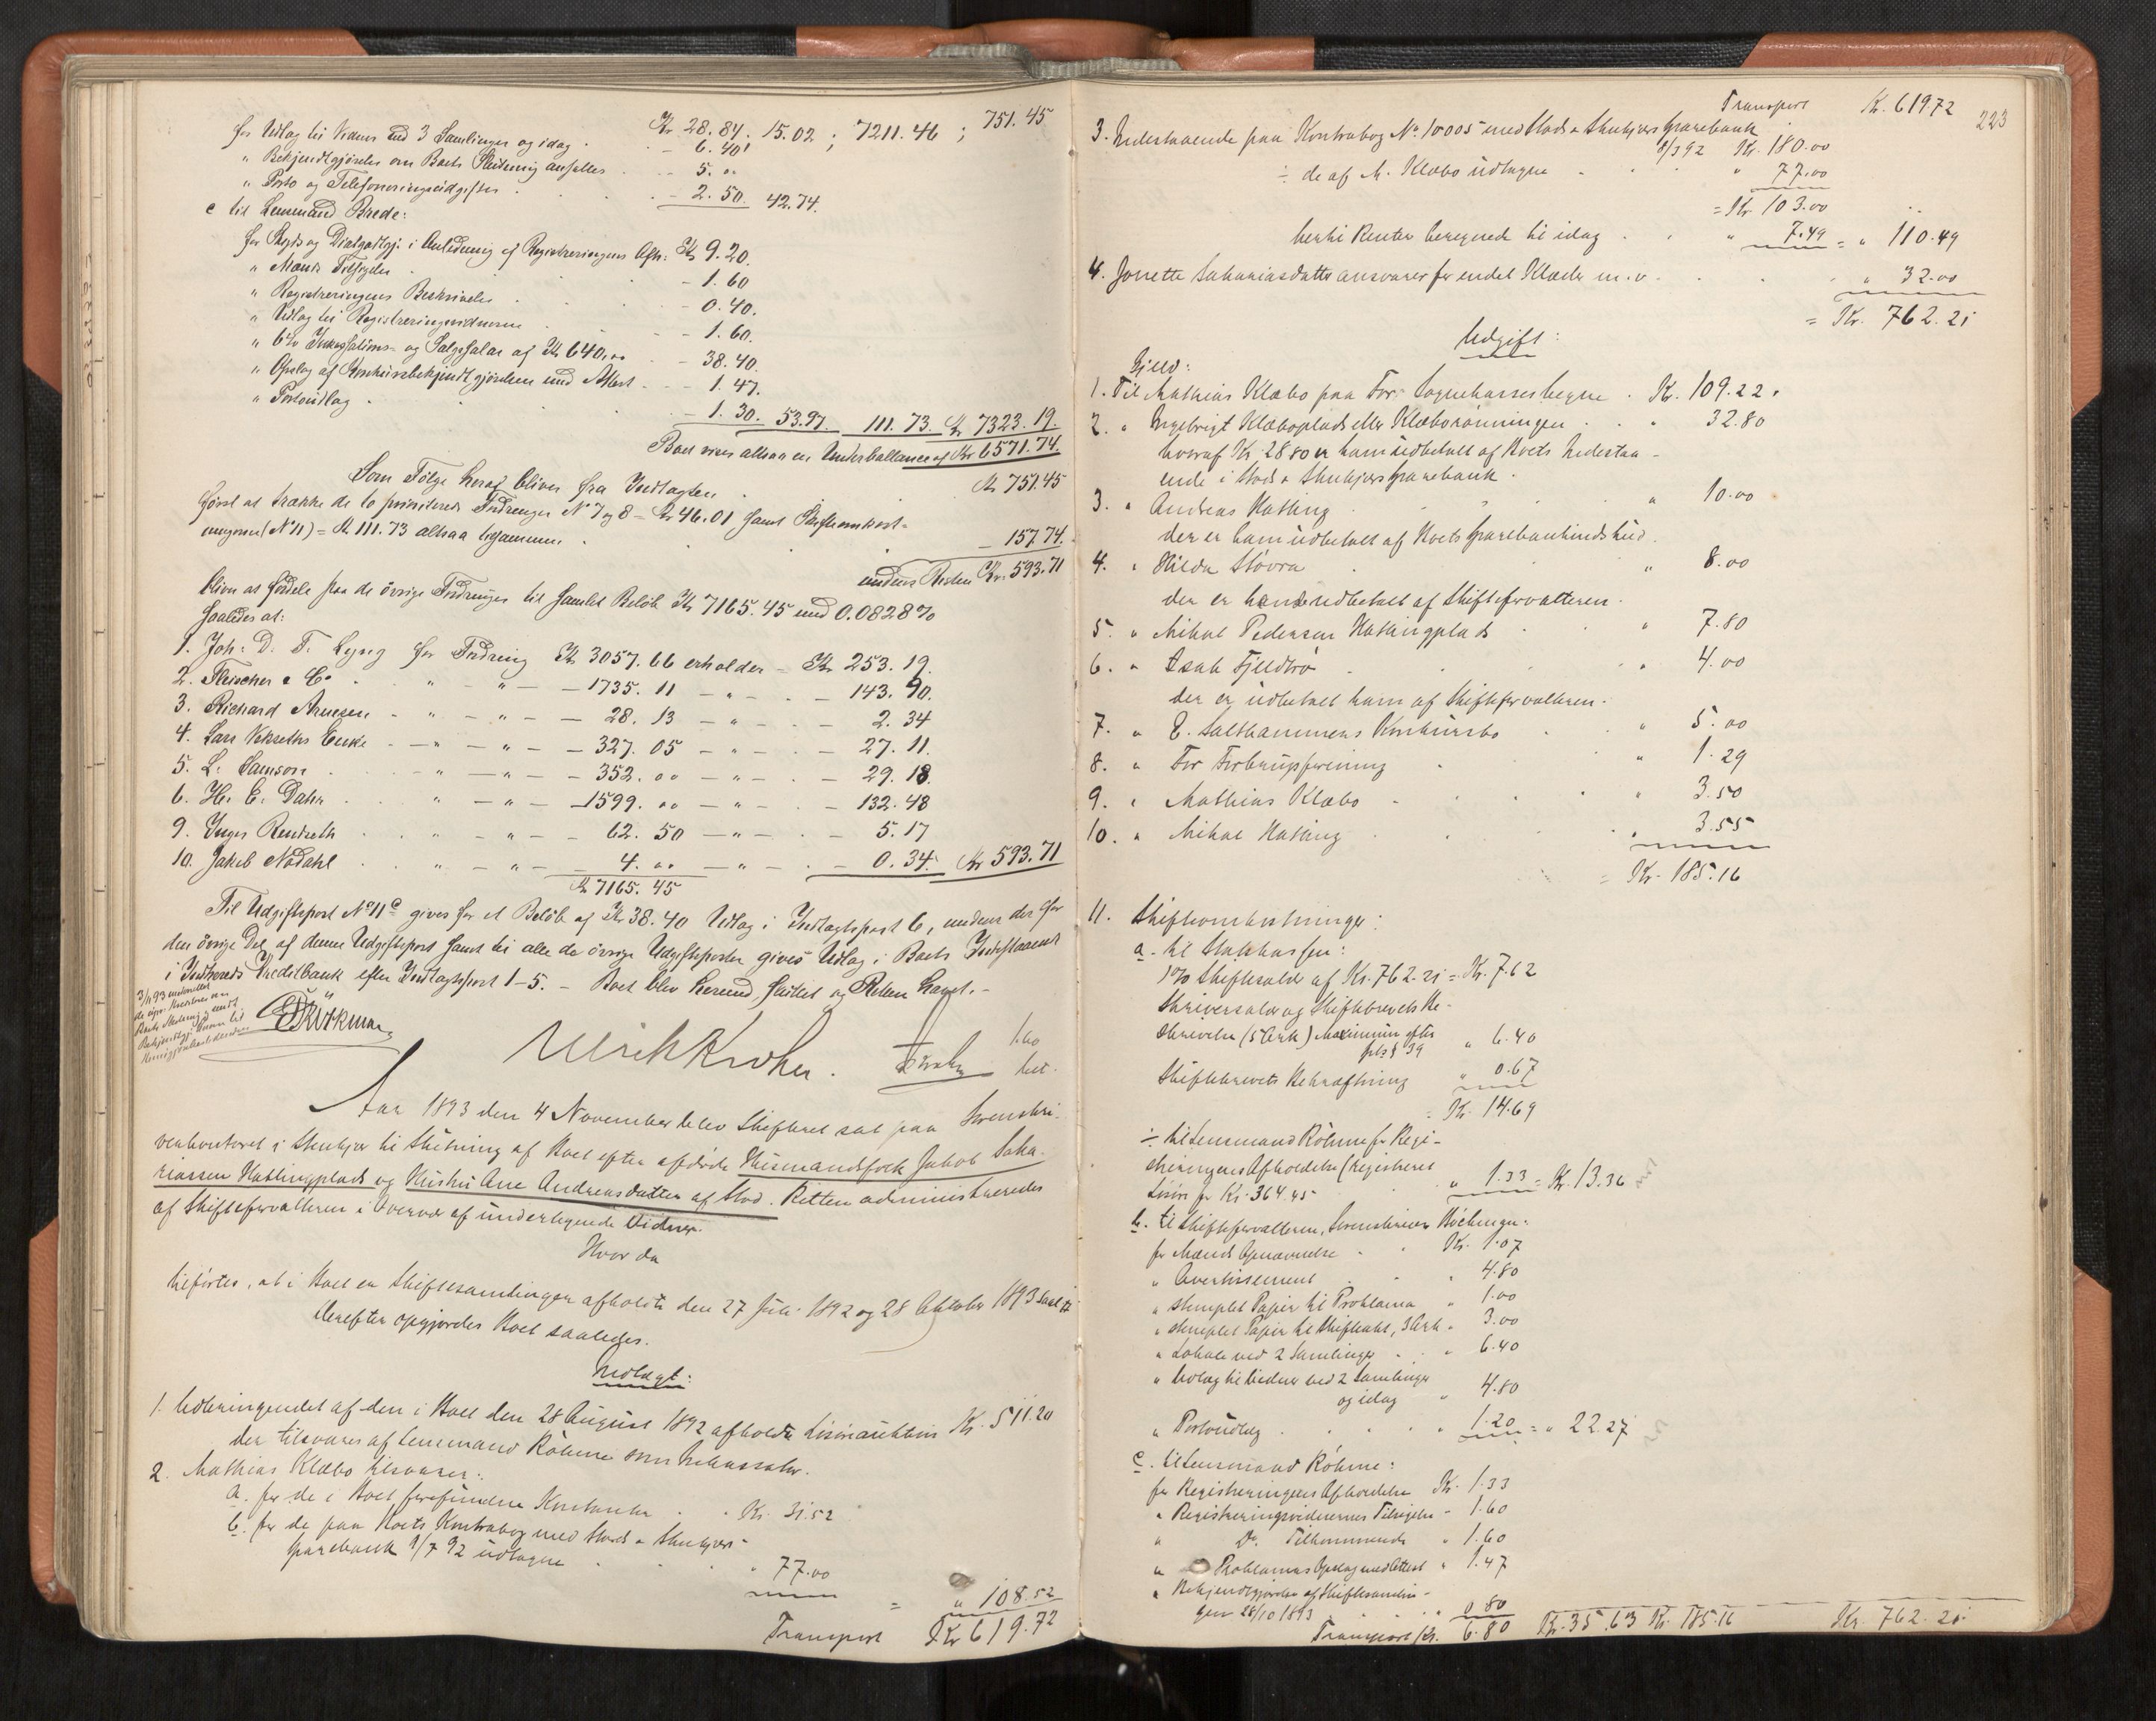 Kr 28.84. 15.02 ; 7211.46 ; 751.45
for Udlag til Vidner ved 3 Samlinger og idag . - 6.40
" Bekjendtgjørelse om Boets Slutning ansættes . - 5. "
" Porto og Telefoneringsudgifter . - 2.50. 42.74.
c til Lensmand Brede:
for Skyds og Diætgodtgj. i Anledning af Registreringens Afh: Kr 9.20.
" Mænds Tilsigelse . - 1.60
" Registreringens Beskrivelse . - 0.40.
" Udlag til Registreringsvidnerne . - 1.60.
" 6% Inkassations- og Salgssalær af Kr 640,00 - 38.40.
" Opslag af Konkursbekjendtgjørelsen med Attest - 1.47.
" Portoudlag . - 1.30. 53.97. 111.73. Kr 7323.19.
Boet viser altsaa en Underballance af Kr 6571.74.
Som Følge heraf bliver fra Indtægten . Kr 751.45
først at trække de to prioriterede Fordringer No 7 og 8 = Kr 46.01 samt Skifteomkost-
ningerne (No 11) = Kr 111.73 altsaa tilsammen . - 157.74.
medens Resten Kr. 593.71
bliver at fordele paa de øvrige Fordringer til samlet Beløb Kr 7165.45 med 0.0828%
saaledes at:
1. Joh: D. T. Lyng for Fordring Kr 3057.66 erholder = Kr 253.19.
2. Fleischer & Co . " - " - - 1735.11 - " - . - 143.90.
3. Richard Arnesen - " - " - - 28.13 - " - . - 2.34
4. Lars Vekseths Enke - " - " - - 327.05 - " - . - 27.11.
5. L. Samson . " - " - - 352. " - " - . - 29.18.
6. H. C. Dahn . " - " - - 1599. " - " - . - 132.48
9. Inger Rendseth . " - " - - 62.50 - " - . - 5.17
10. Jakob Nødahl . " - " - - 4. " - " - . - 0.34. Kr 593.71
Kr 7165.45
Til Udgiftspost No 11 c gives for et Beløb af Kr 38.40 Udlag i Indtægtspost 6, medens der for
den øvrige Del af denne Udgiftspost samt til alle de øvrige Udgiftsposter gives Udlag i Boets Indestaaende
i Indherreds Kreditbank efter Indtægtspost 1-5. - Boet blev hermed sluttet og Retten hævet. -
3/11 93
Aar 1893 den 4 November blev Skifteret sat paa Sorenskri-
verkontoret i Stenkjær til Slutning af Boet efter afdøde Husmandsfolk Jakob Saka-
riassen Hatlingplads og Hustru Ane Andreasdatter af Stod. Retten administreredes
af Skifteforvalteren i Overvær af undertegnede Vidner.
Hvor da
tilførtes, at i Boet er Skiftesamlinger afholdte den 27 Juli 1892 og 28 Oktober 1893
Derefter opgjordes Boet saaledes.
Indtægt:
1. Udbringendet af den i Boet den 28 August 1892 afholdte Løsøreauktion Kr. 511.20
der tilsvares af Lensmand Röhme som Inkassator.
2. Mathias Klæbo tilsvarer:
a. for de i Boet forefundne Kontanter . . Kr. 31.52
b. for de paa Boets Kontrabog med Stod & Stenkjærs
Sparebank 1/7 92 udtagne . . " 77.00
= " 108.52
Transport Kr 619.72
Transport Kr. 619.72 223
3. Indestaaende paa Kontrabog No. 10005 med Stod & Stenkjærs Sparebank
1/3 92 Kr. 180.00
÷ de af M. Klæbo udtagne . . " 77.00
= Kr. 103.00
hertil Renter beregnede til idag . . " 7.49 = " 110.49
4. Jonette Sakariasdatter ansvarer for endel Klæder m.v. . . " 32.00
= Kr. 762.21
Udgift:
Gjæld:
1. Til Mathias Klæbo paa For: Sognekasses Vegne . Kr. 109.22.
2. " Ingebrigt Klæboplads eller Klæborønningen . " 32.80
hvoraf Kr. 28.80 er ham udbetalt af Boets Indestaa-
ende i Stod & Stenkjærs Sparebank .
3. " Andreas Hatling . " 10.00
der er ham udbetalt af Boets Sparebankindskud.
4. " Hilda Støvra . " 8.00
der er hende udbetalt af Skifteforvalteren.
5. " Mikal Pedersen Hatlingplads . " 7.80
6. " Isak Fjeldtrø . " 4.00
der er udbetalt ham af Skifteforvalteren.
7. " E. Salthammers Konkursbo . " 5.00
8. " For Forbrugsforening . " 1.29
9. " Mathias Klæbo . " 3.50
10. " Mikal Hatling . " 3.55
= Kr. 185.16
11. Skifteomkostninger:
a. til Statskassen:
1% Skiftesalær af Kr. 762.21 = Kr. 7.62
Skriversalær og Skiftebrevets Be-
skrivelse (5 Ark) Maximum efter
§ 39 " 6.40
Skiftebrevets Bekræftning " 0.67
= Kr. 14.69
÷ til Lensmand Röhme for Regi-
streringens Afholdelse (Registreret
Løsøre for Kr. 364.45 " 1.33 = Kr. 13.36
b. til Skifteforvalteren, Sorenskriver Böchman:
for Mænds Opnævnelse . Kr. 1.07
" Avertissement . " 4.80
" stemplet Papir til Proklama " 1.00
" stemplet Papir til Skifteakt, 3 Ark " 3.00
" Lokale ved 2 Samlinger . " 6.40
" Udlag til Vidner ved 2 Samlinger
og idag " 4.80
" Portoudlæg . . " 1.20 = " 22.27
c. til Lensmand Röhme:
for Registreringens Afholdelse Kr. 1.33
" Registreringsvidnernes Tilsigelse - 1.60
" Do. Tilkommende " 1.60
" Proklamas Opslag med Attest " 1.47
" Bekjendtgjørelse af Skiftesamlin-
gen 28/10 1893 . " 0.80
Transport Kr. 6.80 Kr. 35.63 Kr. 185.16 Kr. 762.21